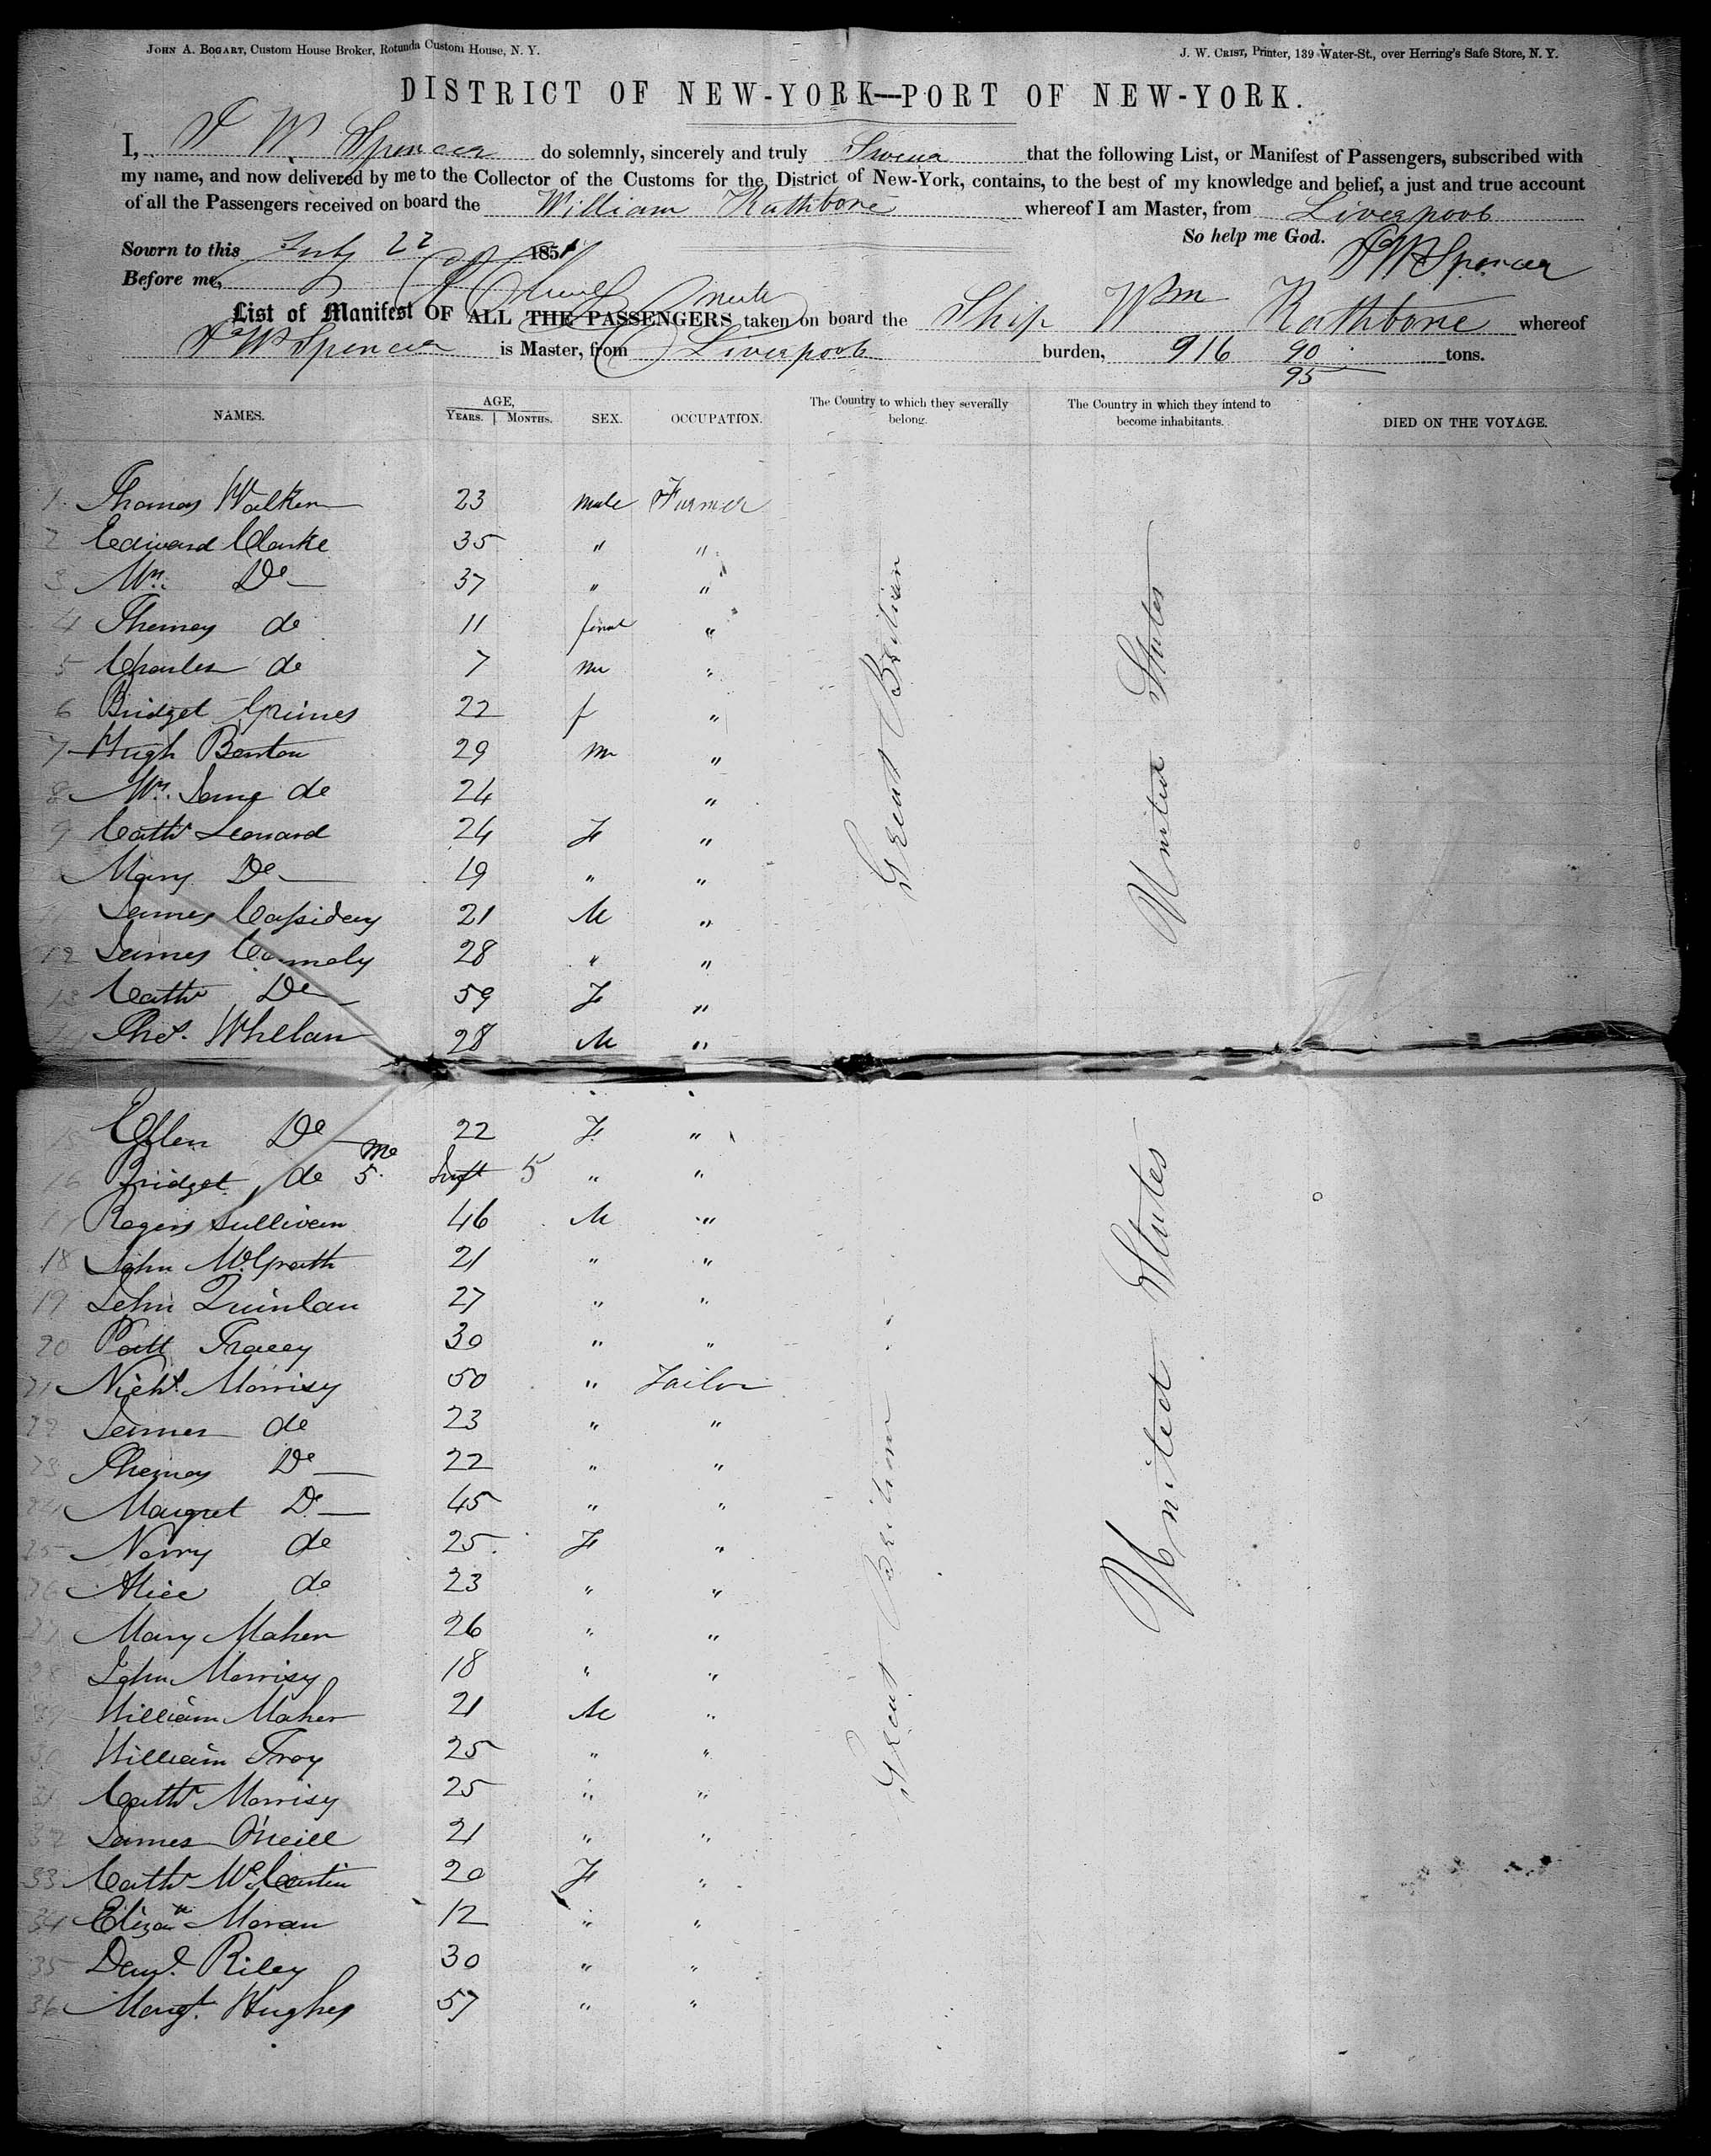 JOHN A. BOGART, Custom House Broker, Rotunda Custom House, N. Y.
J. W. CRIST, Printer, 139 Water-St., over Herring's Safe Store, N. Y.
DISTRICT OF NEW-YORK—PORT OF NEW-YORK.
I, W Spencer do solemnly, sincerely and truly that the following List, or Manifest of Passengers, subscribed with
my name, and now delivered by me to the Collector of the Customs for the District of New-York, contains, to the best of my knowledge and belief, a just and true account
of all the Passengers received on board the William Rathbone whereof I am Master, from Liverpool
So help me God.
Sowrn to this July 22 1851
W Spencer
Before me,
List of Manifest OF ALL THE PASSENGERS taken on board the Ship Wm Rathbone whereof
W Spencer is Master, from Liverpool burden, 916 90/95 tons.
NAMES. AGE, YEARS. | MONTHS. SEX. OCCUPATION. The Country to which they severally belong. The Country in which they intend to become inhabitants. DIED ON THE VOYAGE.
1 Thomas Walker 23 male Farmer
2 Edward Clarke 35 " "
3 Do 37 " "
4 Thomas do 11 femal "
5 Charles do 7 m "
6 Bridget Grimes 22 f "
7 Hugh Benton 29 m "
8 Mrs. Jane do 24 "
9 Cathe Leonard 24 F "
Mary Do 19 " "
11 James Cassidey 21 M "
12 James Connoly 28 " "
13 Cathe Do 59 F "
14 Thos. Whelan 28 M "
Great Britian
United States
15 Ellen Do 22 F "
16 Bridget do 5 mo Inft 5 " "
17 Rogers Sullivan 46 M "
18 John McGrath 21 " "
19 John Quinlan 27 " "
20 Patt Tracey 30 " "
21 Nichs. Morrisy 50 " Tailor
22 James do 23 " "
23 Thomas Do 22 " "
24 Margret Do 45 " "
25 Norry do 25 F "
26 Alice do 23 " "
27 Mary Maher 26 " "
28 John Morrisy 18 " "
29 William Maher 21 M "
30 William Troy 25 " "
31 Cathe Morrisy 25 " "
32 James O'Neill 21 " "
33 Cathe 20 F "
34 Elizath Moran 12 " "
35 Danl. Riley 30 " "
36 Margt. Hughes 57 " "
Great Britian
United States